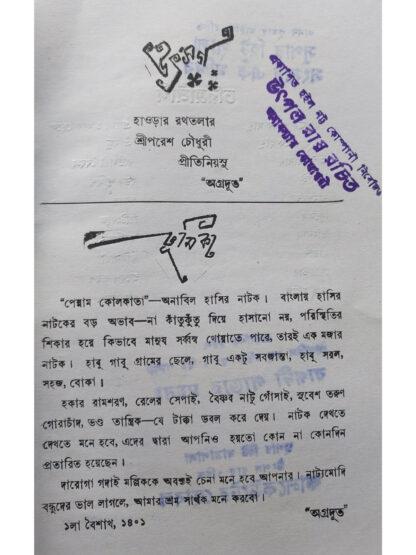 উৎসর্গ
হাওড়ার রথতলার
শ্রীপরেশ চৌধুরী
প্রীতিনিয়সু
“অগ্রদূত”
প্রকাশিত হইল নট্ট কোম্পানী নিবেদিত
উৎপল রায় রচিত
ভূমিকা
“পেন্নাম কোলকাতা”—অনাবিল হাসির নাটক। বাংলায় হাসির
নাটকের বড় অভাব—না কাঁতুকুঁতু দিয়ে হাসানো নয়, পরিস্থিতির
শিকার হয়ে কিভাবে মানুষ সর্বস্ব খোয়াতে পারে, তারই এক মজার
নাটক। হাবু গাবু গ্রামের ছেলে, গাবু একটু সবজান্তা, হাবু সরল,
সহজ, বোকা।
হকার রামশরণ, রেলের সেপাই, বৈষ্ণব নাটু গোঁসাই, সুবেশ তরুণ
গোরাচাঁদ, ভণ্ড তান্ত্রিক—যে টাক্কা ডবল করে দেয়। নাটক দেখতে
দেখতে মনে হবে, এদের দ্বারা আপনিও হয়তো কোন না কোনদিন
প্রতারিত হয়েছেন।
দারোগা গদাই মল্লিককে অবশ্যই চেনা মনে হবে আপনার। নাট্যমোদি
বন্ধুদের ভাল লাগলে, আমার শ্রম সার্থক মনে করবো।
“অগ্রদূত”
১লা বৈশাখ, ১৪০১